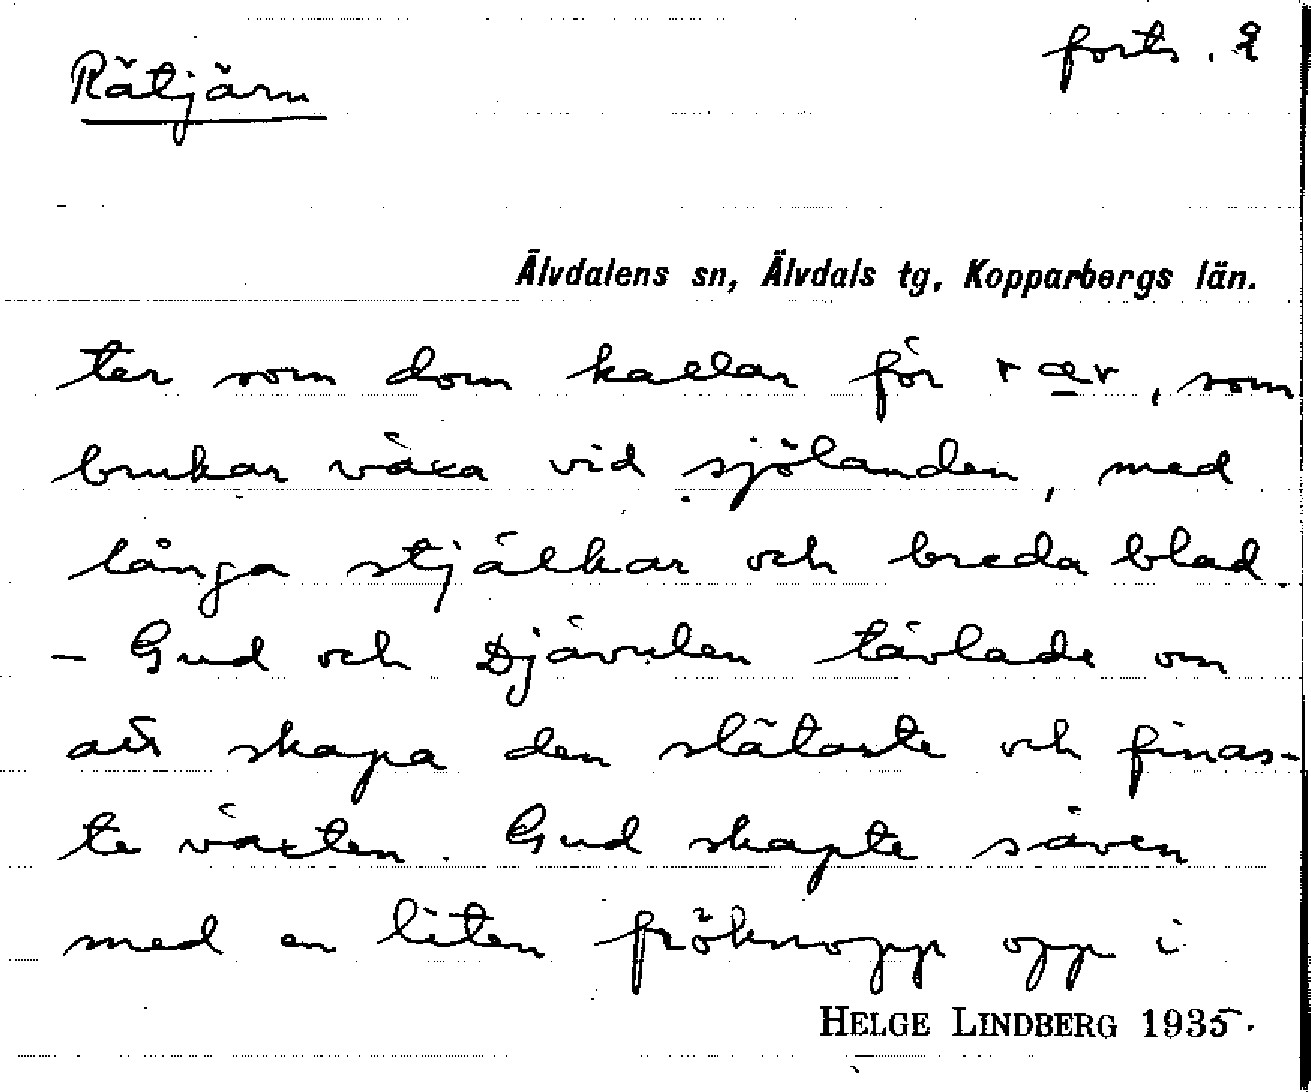 Rätjärn
forts. 2
Älvdalens sn, Älvdals tg, Kopparbergs län.
ter som dom kallar för rær, som
brukar växa vid sjölanden, med
långa stjälkar och breda blad.
- Gud och Djävulen tävlade om
att skapa den slätaste och finas-
te växten. Gud skapte säven
med en liten fröknopp opp i
HELGE LINDBERG 1935.